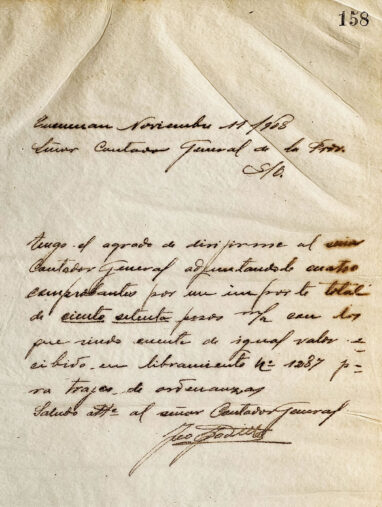 158
Tucuman Noviembre 11/908
Señor Contador General de la Prov.
S/D.
Tengo el agrado de dirijirme al señor
Contador General adjuntandole cuatro
comprobantes por un importe total
de ciento setenta pesos m/n con los
que rindo cuenta de igual valor re
cibido en libramiento nº 1287 p
ra trajes de ordenanzas
Saludo atte al señor Contador General
Padilla